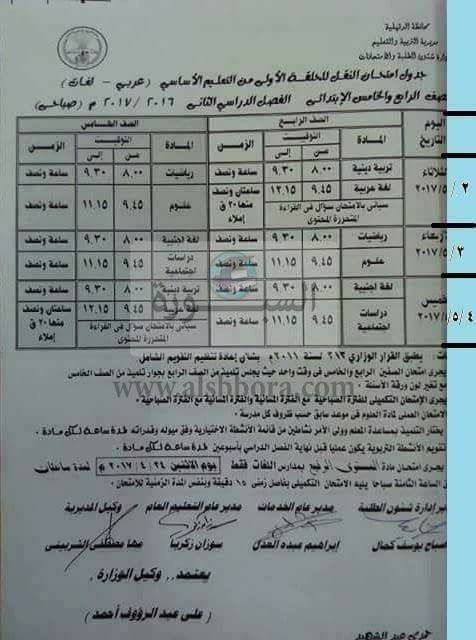 محافظة الدقهلية
مديرية التربية والتعليم
إدارة شئون الطلبة والامتحانات
جدول امتحان النقل للحلقة الأولى من التعليم الأساسي (عربي - لغات)
الصف الرابع والخامس الإبتدائى الفصل الدراسي الثانى ٢٠١٦ / ٢٠١٧ م (صباحى)
اليوم التاريخ الصف الرابع الصف الخامس
المادة التوقيت الزمن المادة التوقيت الزمن
من إلى من إلى
الثلاثاء ٢ / ٥ /٢٠١٧ تربية دينية ٨.٠٠ ٩.٣٠ ساعة ونصف رياضيات ٨.٠٠ ٩.٣٠ ساعة ونصف
لغة عربية ٩.٤٥ ١٢.١٥ ساعتان ونصف منها ٢٠ ق إملاء علوم ٩.٤٥ ١١.١٥ ساعة ونصف
سيأتى بالامتحان سؤال فى القراءة المتحررة المحتوى
الأربعاء ٣ / ٥ /٢٠١٧ رياضيات ٨.٠٠ ٩.٣٠ ساعة ونصف لغة اجنبية ٨.٠٠ ٩.٣٠ ساعة ونصف
علوم ٩.٤٥ ١١.١٥ ساعة ونصف دراسات اجتماعية ٩.٤٥ ١١.١٥ ساعة ونصف
الخميس ٤ / ٥ / لغة اجنبية ٨.٠٠ ٩.٣٠ ساعة ونصف تربية دينية ٨.٠٠ ٩.٣٠ ساعة ونصف
دراسات اجتماعية ٩.٤٥ ١١.١٥ ساعة ونصف لغة عربية ٩.٤٥ ١٢.١٥ ساعتان ونصف منها ٢٠ ق إملاء
سيأتى بالامتحان سؤال فى القراءة المتحررة المحتوى
السبورة
www.alsbbora.com
يطبق القرار الوزاري ٣١٣ لسنة ٢٠١١م بشأن إعادة تنظيم التقويم الشامل
يجرى امتحان الصفين الرابع والخامس فى وقت واحد حيث يجلس تلميذ من الصف الرابع بجوار تلميذ من الصف الخامس
مع تغير لون ورقة الأسئلة
يجرى الإمتحان التكميلى للفترة الصباحية مع الفترة المسائية والفترة المسائية مع الفترة الصباحية
الإمتحان العملى لمادة العلوم فى موعد سابق حسب ظروف كل مدرسة
يختار التلميذ بمساعدة المعلم وولى الأمر نشاطين من قائمة الأنشطة الاختيارية وفق ميوله وقدراته لمدة ساعة لكل مادة
تقويم الأنشطة التربوية يكون عمليا قبل نهاية الفصل الدراسي بأسبوعين لمدة ساعة لكل مادة
يجرى امتحان مادة المستوى الرفيع بمدارس اللغات فقط يوم الاثنين ٢٤ / ٤ / ٢٠١٧ م لمدة ساعتان
الساعة الثامنة صباحا يليه الامتحان التكميلى بفاصل زمنى ١٥ دقيقة وبنفس المدة الزمنية للامتحان
مدير إدارة شئون الطلبة مدير عام الخدمات مدير عام التعليم العام وكيل المديرية
صباح يوسف كمال إبراهيم عبده العدل سوزان زكريا مها مصطفى الشربينى
يعتمد،، وكيل الوزارة
(على عبد الرؤوف أحمد)